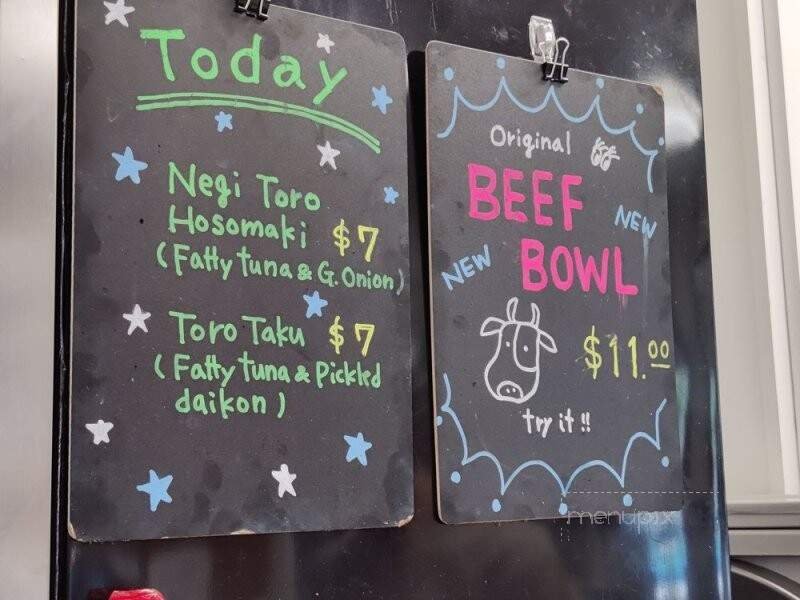 Today
Negi Toro
Hosomaki $7
(Fatty tuna & G. Onion)
Toro Taku $7
(Fatty tuna & Pickled
daikon)
Original
BEEF
NEW
BOWL
NEW
$11.00
try it !!
menupix